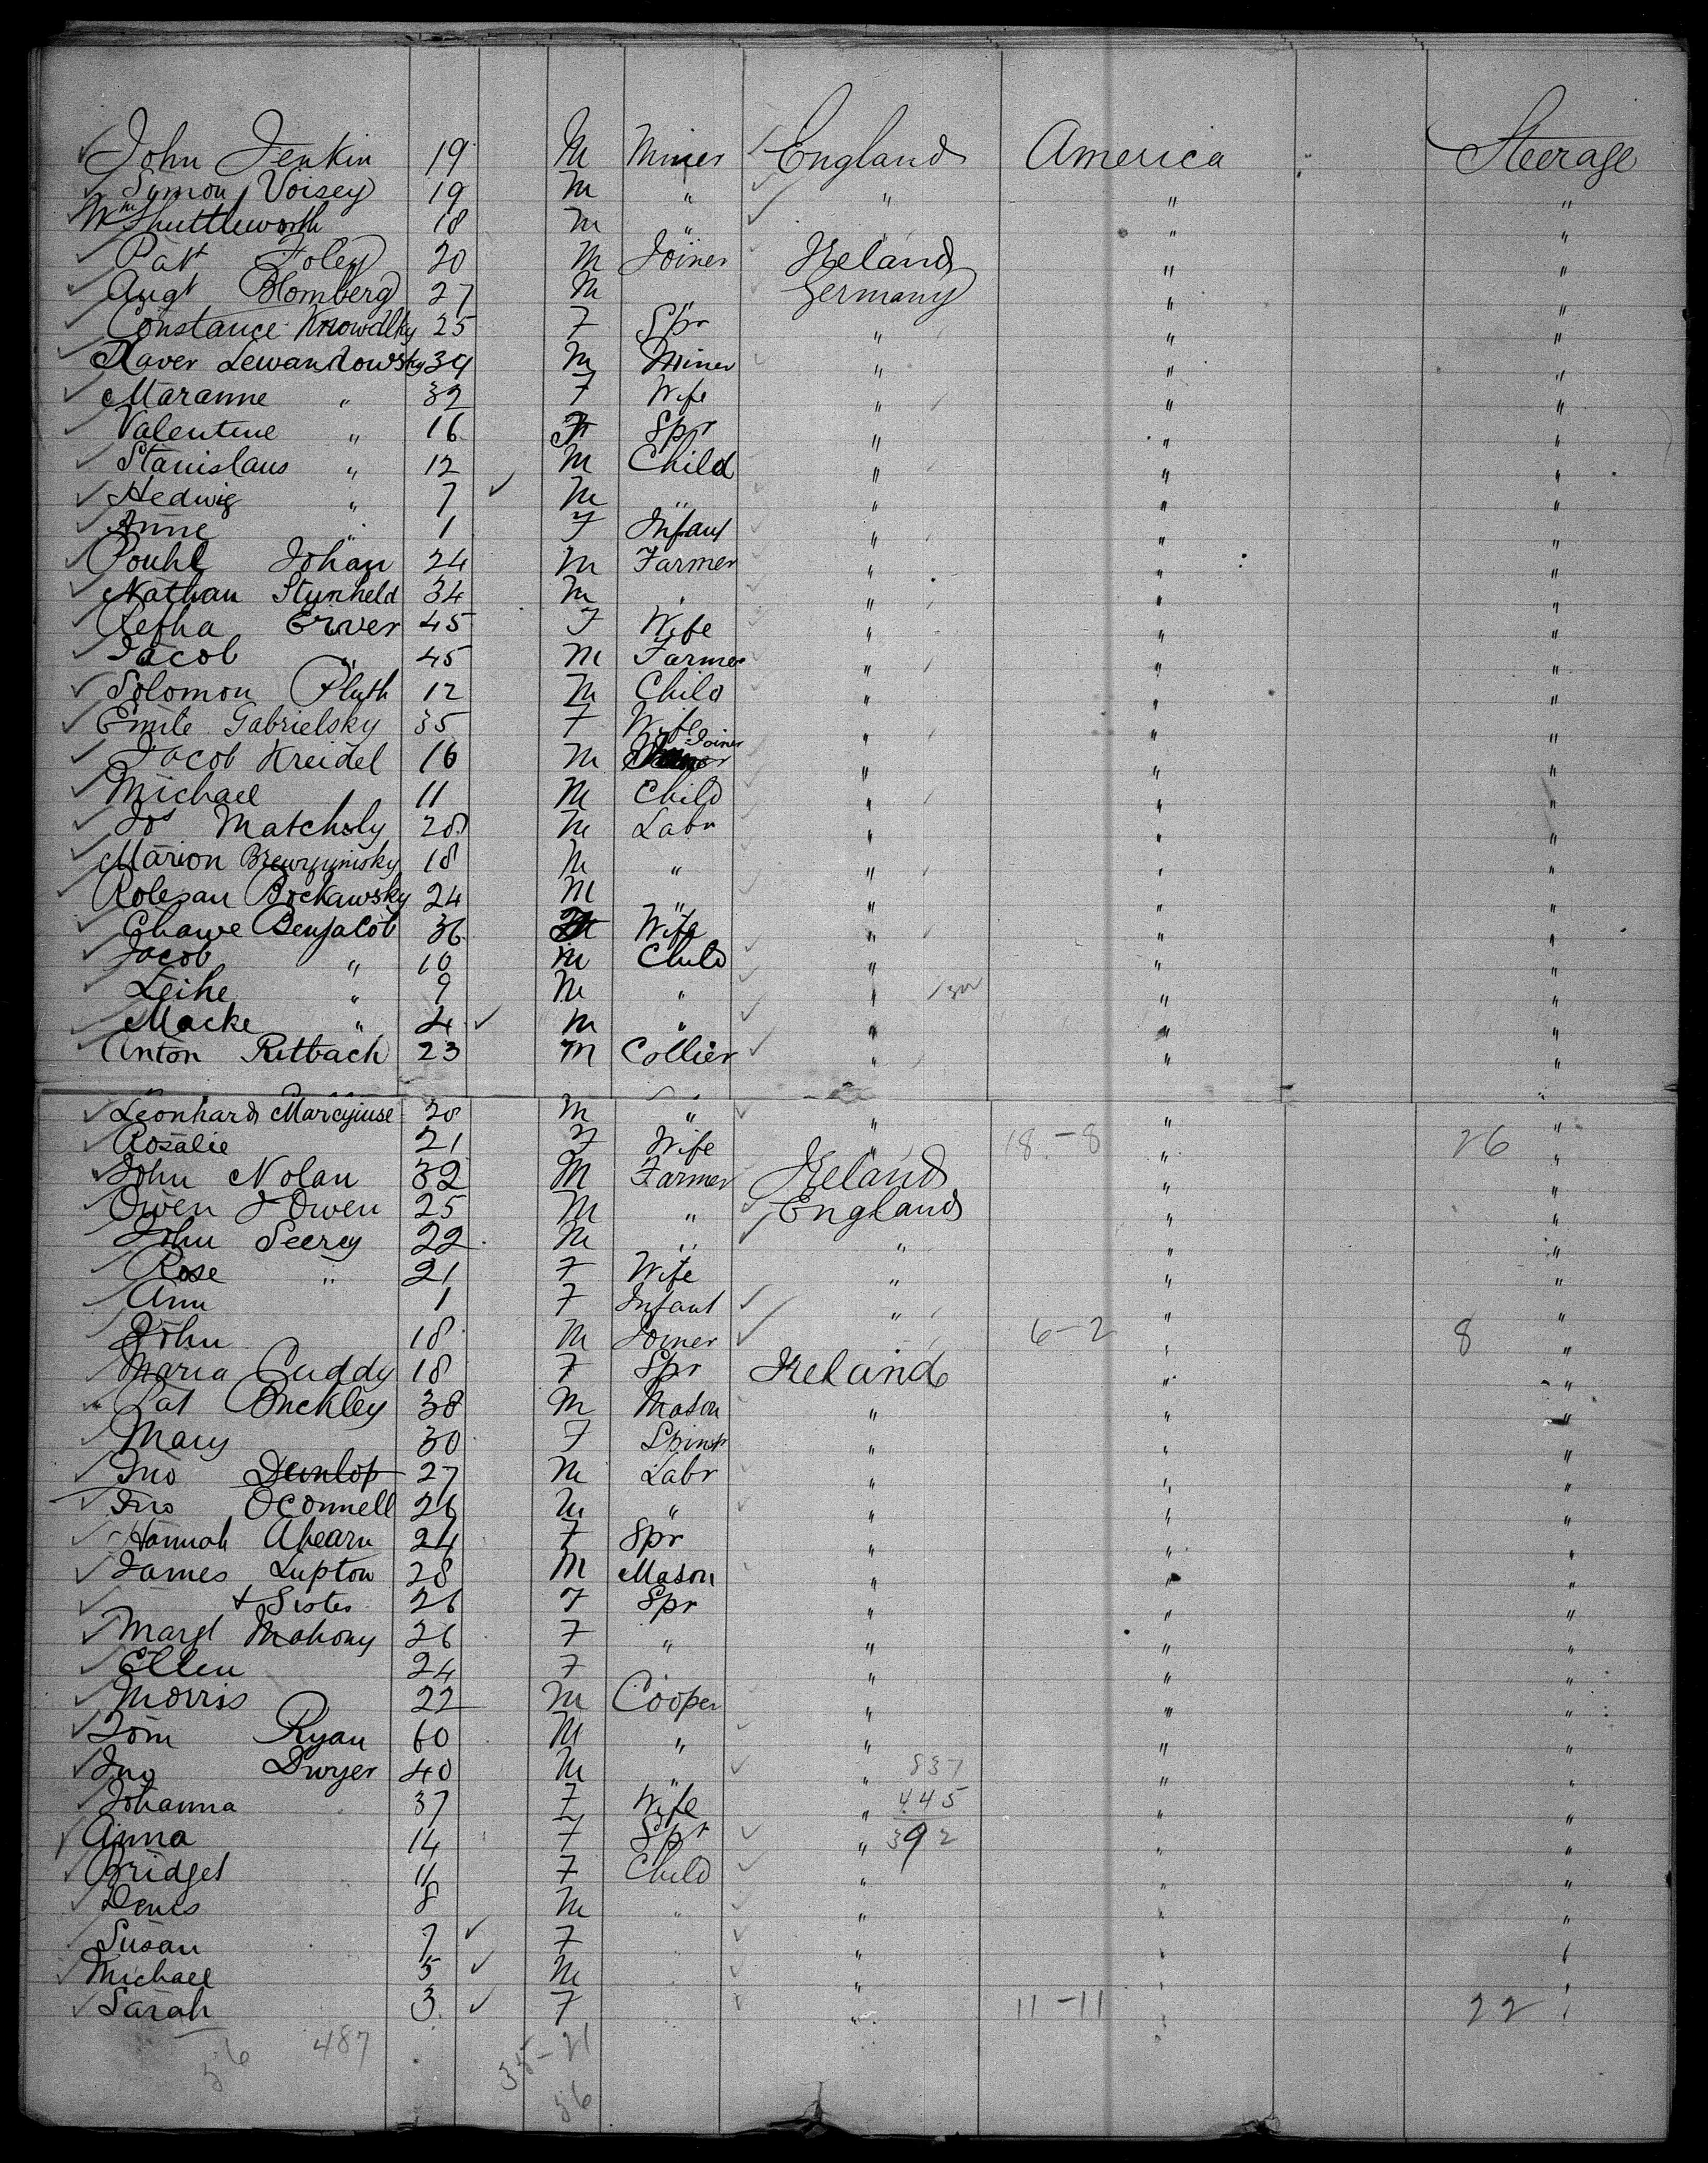 John Jenkin 19 M Miner England America Steerage
Symon Voisey 19 M " " " "
Wm Shuttleworth 18 M " " " "
Pat Foley 20 M Joiner Ireland " "
Augt Blomberg 27 M " Germany " "
Constance Knowdlky 25 F Spr " " "
Xaver Lewandowsky 39 M Miner " " "
Maranne " 32 F Wife " " "
Valentine " 16 F Spr " " "
Stanislaus " 12 M Child " " "
Hedwig " 7 M " " " "
Anne " 1 F Infant " " "
Pouhl Johan 24 M Farmer " " "
Nathan Stynheld 34 M " " " "
Refha Erver 45 F Wife " " "
Jacob " 45 M Farmer " " "
Solomon Pluth 12 M Child " " "
Emile Gabrielsky 35 F Wife " " "
Jacob Kreidel 16 M Joiner " " "
Michael 11 M Child " " "
Jos Matchsly 28 M Labr " " "
Marion 18 M " " " "
Rolesau Bockawsky 24 M " " " "
Chawe Benjacob 36 F Wife " " "
Jacob " 10 M Child " " "
Leihe " 9 M " " " "
Macke " 4 M " " " "
Anton Ritbach 23 M Collier " " "
Leonhard Marcyiuse 20 M " " " "
Rosalie 21 F Wife " 18-8 " 26 "
John Nolan 32 M Farmer Ireland " "
Owen J Owen 25 M " England " "
John Seerey 22 M " " " "
Rose " 21 F Wife " " "
Ann 1 F Infant " " "
John 18 M Joiner 6-2 " 8 "
Maria Cuddy 18 F Spr Ireland " "
Pat Buckley 38 M Mason " " "
Mary 30 F Spinst " " "
Jno Dunlop 27 M Labr " " "
Jno OConnell 26 M " " " "
Hannah Ahearn 24 F Spr " " "
James Lupton 28 M Mason " " "
+ Sister 26 F Spr " " "
Margt Mahony 26 F " " " "
Ellen 24 F " " "
Morris 22 M Cooper " " "
Tom Ryan 60 M " " " "
Jno Dwyer 40 M " " 837 " "
Johanna 37 F Wife " 445 " "
Anna 14 F Spr " 392 " "
Bridget 11 F Child " " "
Denis 8 M " " " "
Susan 7 F " " " "
Michael 5 M " " "
Sarah 3 F " 11-11 " 22 "
56 487 35-21
56